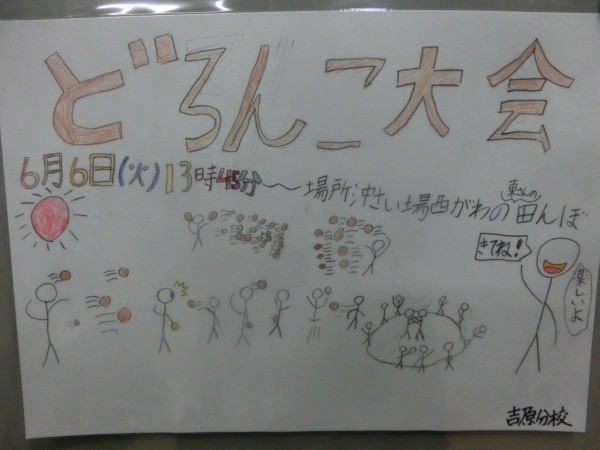 どろんこ大会
6月6日(火)13時45分〜場所:けいさい場西がわの田んぼ
東さんの
きてね!
楽しいよ
吉原分校